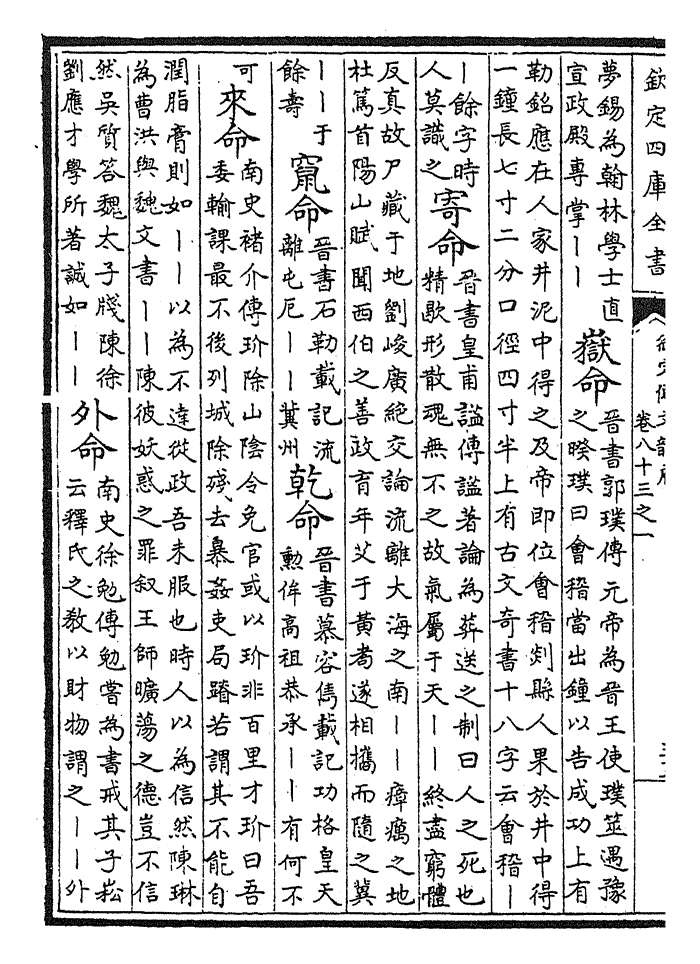 欽定四庫全書
卷八十三之一
夢錫為翰林學士直
宣政殿專掌丨丨
嶽命
晉書郭璞傳元帝為晉王使璞筮遇豫
之睽璞曰會稽當出鐘以告成功上有
勒銘應在人家井泥中得之及帝即位會稽剡縣人果於井中得
一鐘長七寸二分口徑四寸半上有古文奇書十八字云會稽丨
丨餘字時
人莫識之
寄命
晉書皇甫謐傳謐著論為葬送之制曰人之死也
精歇形散魂無不之故氣屬于天丨丨終盡窮體
反真故尸藏于地劉峻廣絶交論流離大海之南丨丨瘴癘之地
杜篤首陽山賦聞西伯之善政育年艾于黄耉遂相攜而隨之冀
丨丨于
餘壽
竄命
晉書石勒載記流
離屯厄丨丨冀州
乾命
晉書慕容儁載記功格皇天
勲侔高祖恭承丨丨有何不
可
來命
南史褚介傳玠除山陰令免官或以玠非百里才玠曰吾
委輸課最不後列城除殘去暴姦吏局蹐若謂其不能自
潤脂膏則如丨丨以為不達從政吾未服也時人以為信然陳琳
為曹洪與魏文書丨丨陳彼妖惑之罪叙王師曠蕩之德豈不信
然吳質答魏太子牋陳徐
劉應才學所著誠如丨丨
外命
南史徐勉傳勉嘗為書戒其子崧
云釋氏之教以財物謂之丨丨外